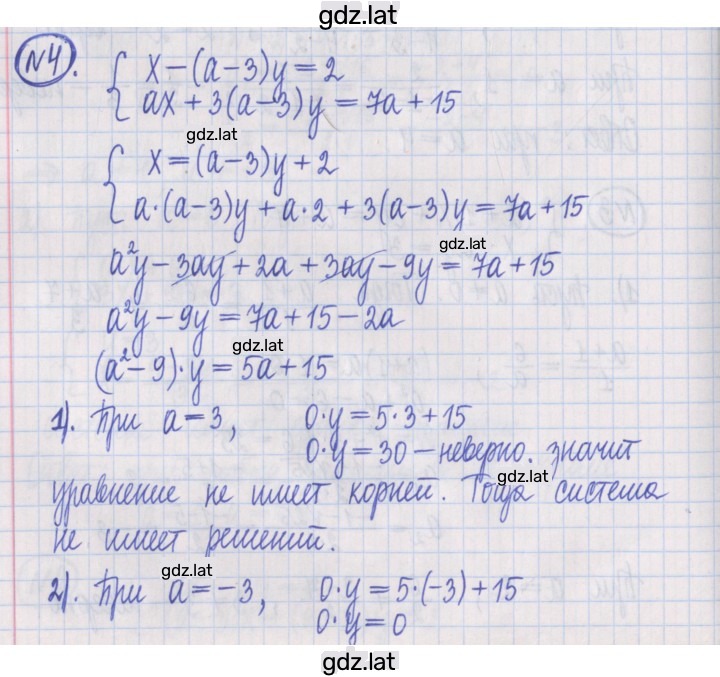 gdz.lat
№4.
{ x − (a−3)y = 2
{ ax + 3(a−3)y = 7a + 15
gdz.lat
{ x = (a−3)y + 2
{ a·(a−3)y + a·2 + 3(a−3)y = 7a + 15
gdz.lat
a²y − 3ay + 2a + 3ay − 9y = 7a + 15
a²y − 9y = 7a + 15 − 2a
gdz.lat
(a² − 9)·y = 5a + 15
1). При a = 3, 0·y = 5·3 + 15
0·y = 30 – неверно. значит
gdz.lat
уравнение не имеет корней. Тогда система
не имеет решений.
gdz.lat
2). При a = −3, 0·y = 5·(−3) + 15
0·y = 0
gdz.lat